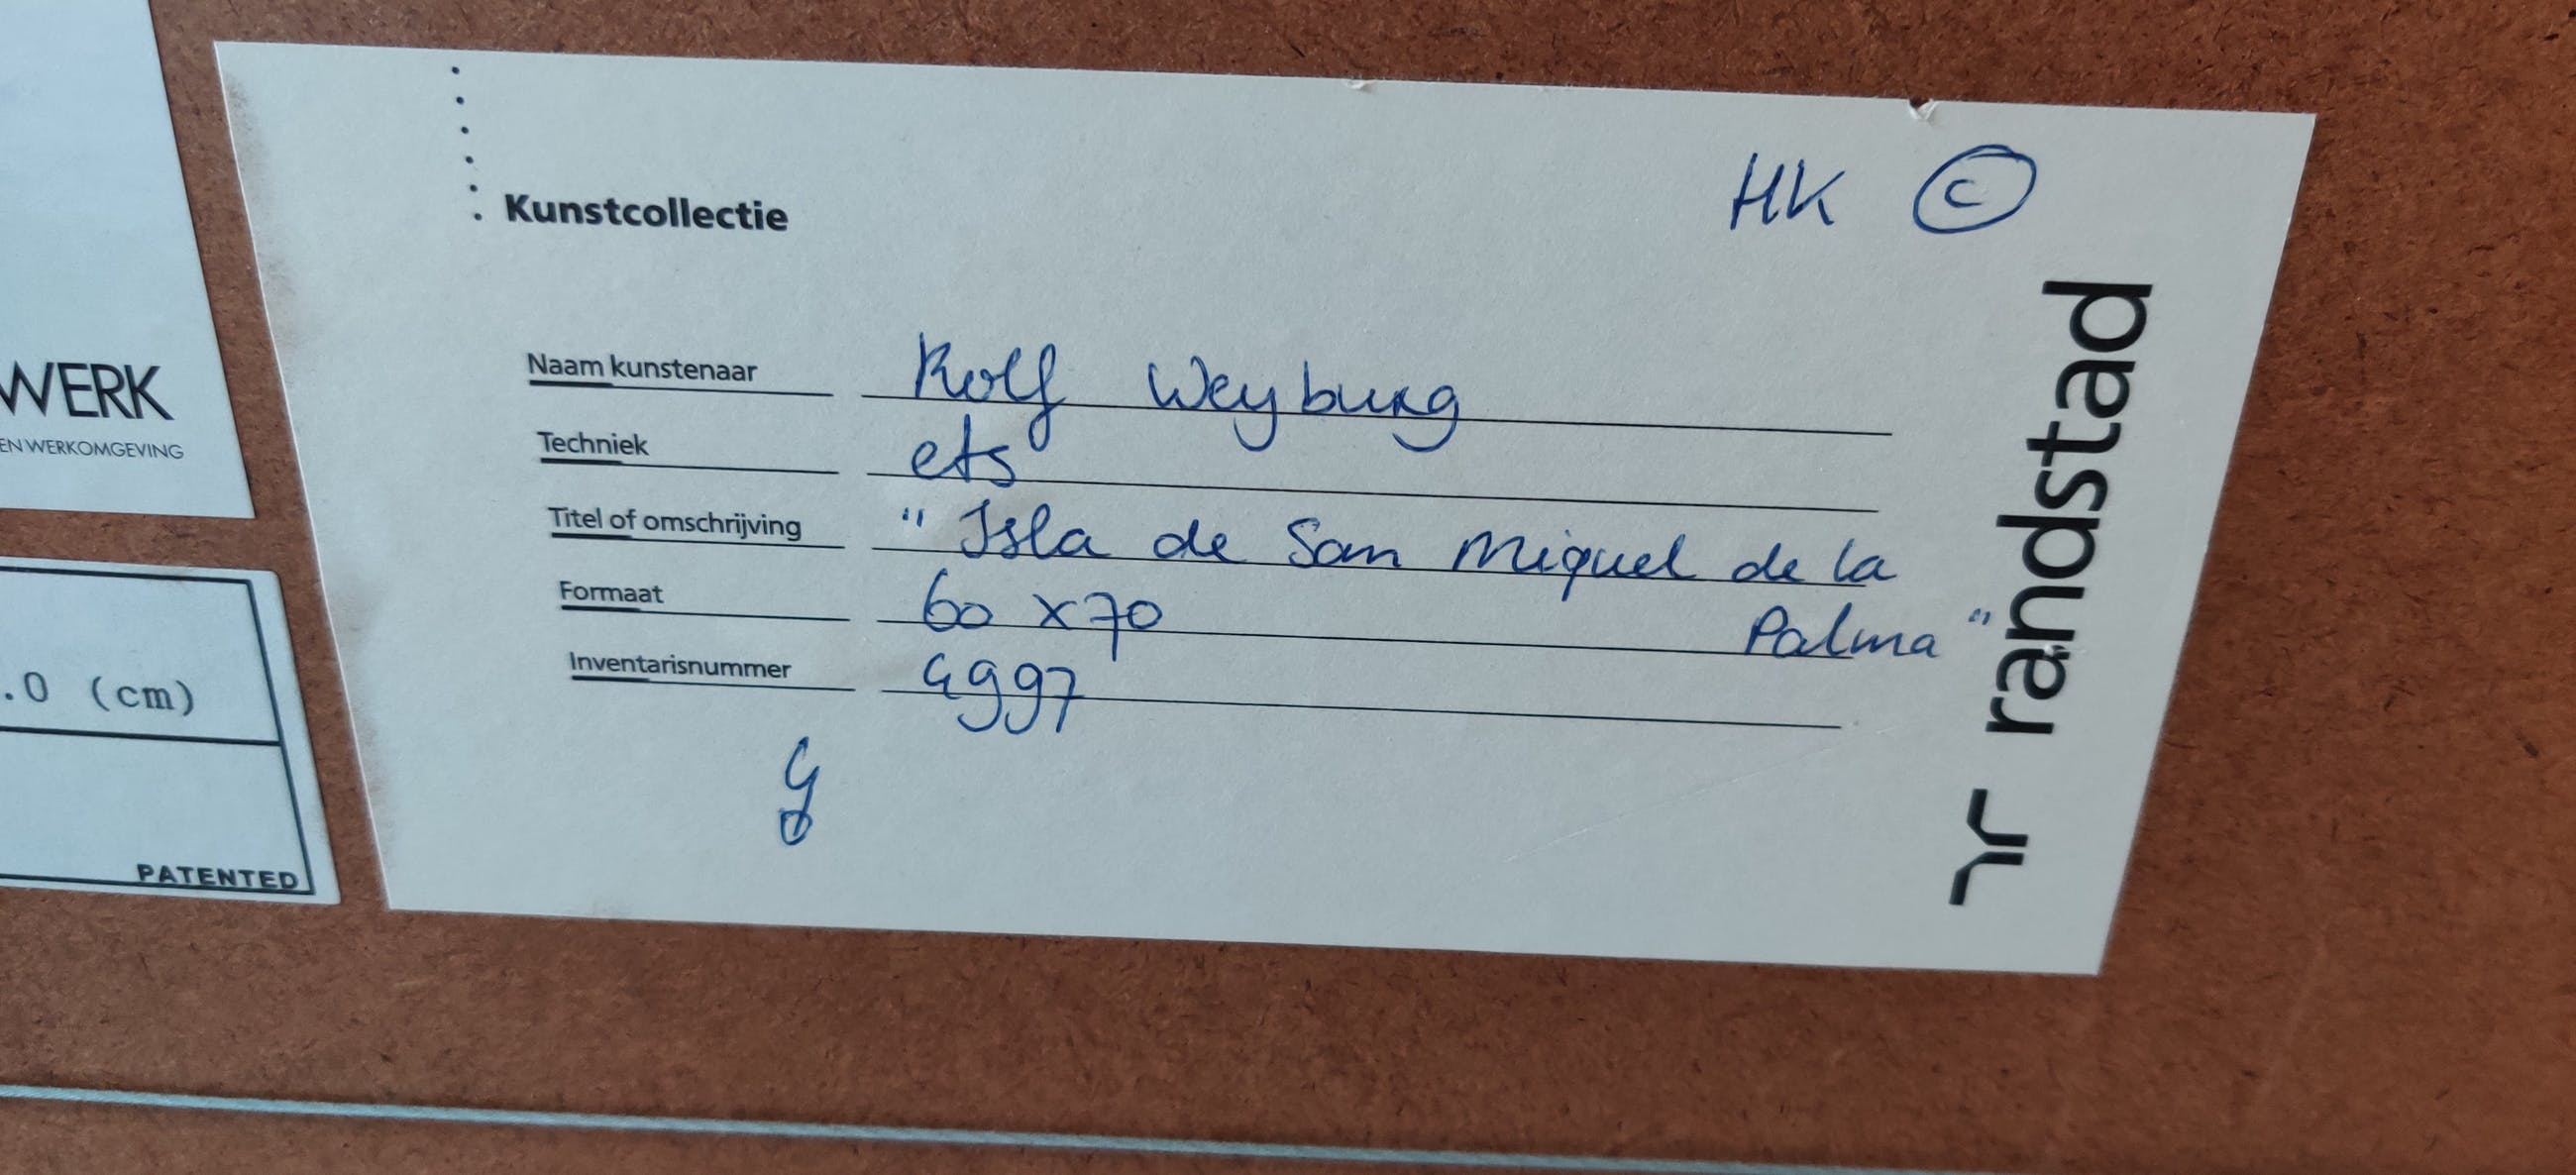 WERK
EN WERKOMGEVING
.0 (cm)
PATENTED
HK ©
Kunstcollectie
Naam kunstenaar Rolf Weyburg
Techniek ets
Titel of omschrijving "Isla de San Miquel de la
Palma"
Formaat 60 x 70
Inventarisnummer 4997
randstad